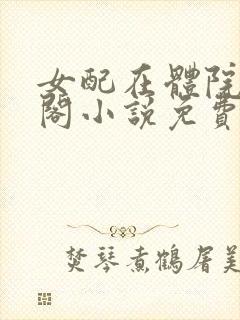 女配在體院
閣小說免費
焚琴煮鶴屠美